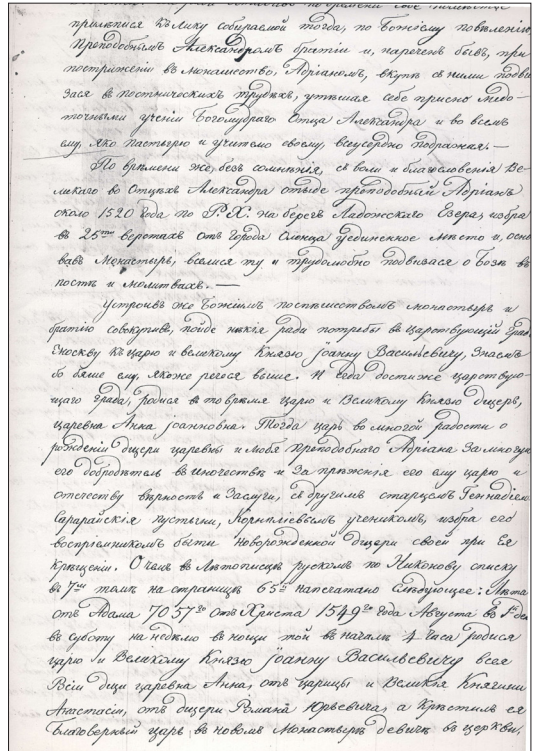 прилепися къ лику собираемой тогда, по Божiему повелѣнiю,
Преподобнымъ Александромъ братiи и, нареченъ бывъ, при
постриженiи въ монашество, Адрiаномъ, вкупѣ съ ними подви
зася въ постническихъ трудѣхъ, утѣшая себе присно медо-
точными ученiи Богомудраго Отца Александра и во всемъ
ему, яко пастырю и учителю своему, всеусердно подражая. —
По времени же, безъ сомнѣнiя, съ воли и благословенiя Ве-
ликаго во Отцѣхъ Александра отыде преподобный Адрiанъ
около 1520 года по Р. Х. на берегъ Ладожскаго Езера, избра
въ 25ти верстахъ отъ города Олонца уединенное мѣсто и, осно
вавъ Монастырь, вселися ту и трудолюбно подвизася о Бозѣ въ
постѣ и молитвахъ. —
Устроивъ же Божiимъ поспѣшествомъ монастырь и
братiю совокупивъ, пойде нѣкiя ради потребы въ царствующiй градъ
Москву къ царю и великому Князю Iоанну Васильевичу, знаемъ
бо бяше ему, якоже речеся выше. И егда достиже царствую-
щаго града, родися въ то время царю и Великому Князю дщерь,
царевна Анна Iоанновна. Тогда царь во многой радости о
рожденiи дщери царевны и любя Преподобнаго Адрiана за многую
его добродѣтель въ иночествѣ и за прежнiя его ему царю и
отечеству вѣрность и заслуги, съ другимъ старцемъ Геннадiемъ
Сарарайскiя пустыни, Корнилiевымъ ученикомъ, избра его
воспрiемникомъ быти новорожденной дщери своей при Ея
крещенiи. О чемъ въ Лѣтописцѣ рускомъ по Никонову списку
въ 7мъ томѣ на страницѣ 65й напечатано слѣдующее: Лѣта
отъ Адама 7057го отъ Христа 1549го года Августа въ 1й день
въ суботу на недѣлю въ нощи той въ началѣ 4 часа родися
царю и Великому Князю Iоанну Васильевичу всея
Россiи дщи царевна Анна, отъ царицы и Великiя Княгини
Анастасiи, отъ дщери Романа Юрьевича, а крестилъ ея
Благоверный царь въ новомъ Монастырѣ девичѣ въ церкви,